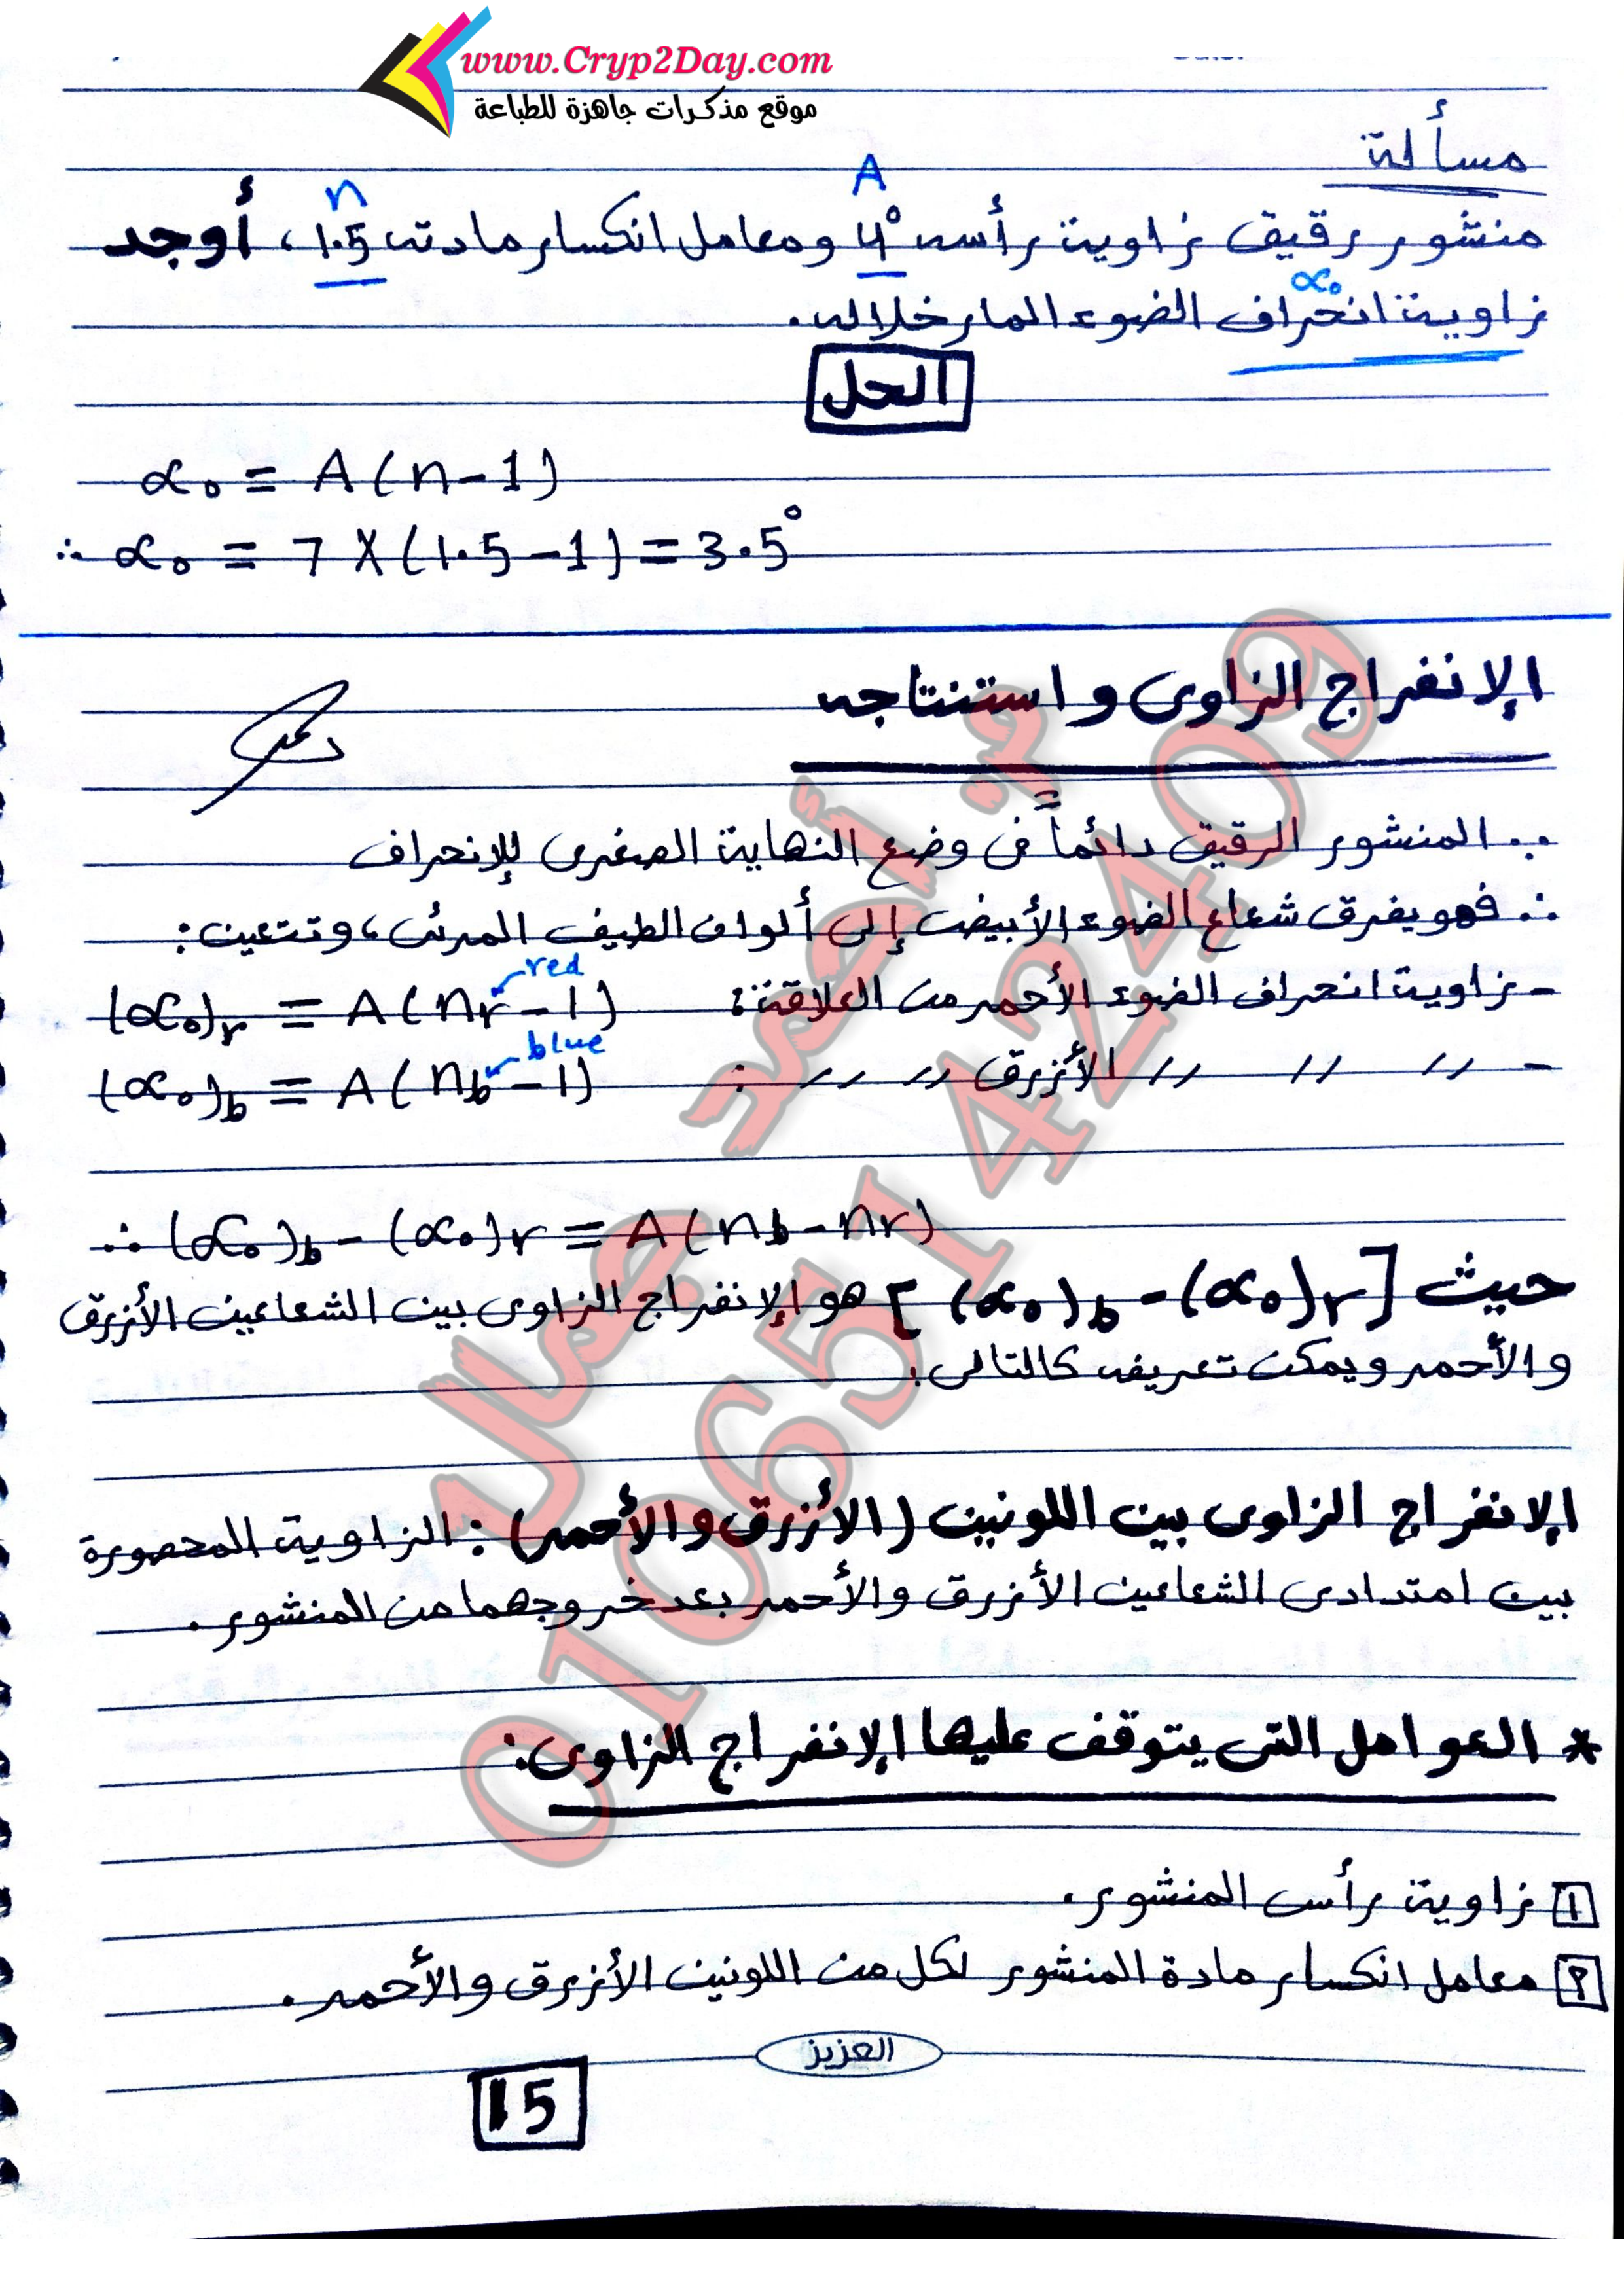 www.Cryp2Day.com
موقع مذكرات جاهزة للطباعة
مسألة
منشور رقيق زاوية رأسه 4° ومعامل انكسار مادته 1.5، أوجد
A
n
زاوية انحراف الضوء المار خلاله.
α₀
الحل
α₀ = A(n-1)
∴ α₀ = 7 X (1.5-1) = 3.5°
الإنفراج الزاوى واستنتاجه
∵ المنشور الرقيق دائماً فى وضع النهاية الصغرى للإنحراف
∴ فهو يفرق شعاع الضوء الأبيض إلى ألوان الطيف المرئى، وتتعين:
- زاوية انحراف الضوء الأحمر من العلاقة: (α₀)r = A(nr-1)
red
- // // // الأزرق // // : (α₀)b = A(nb-1)
blue
∴ (α₀)b - (α₀)r = A(nb-nr)
حيث [(α₀)b - (α₀)r] هو الإنفراج الزاوى بين الشعاعين الأزرق
والأحمر ويمكن تعريفه كالتالى:
الإنفراج الزاوى بين اللونين (الأزرق والأحمر): الزاوية المحصورة
بين امتدادى الشعاعين الأزرق والأحمر بعد خروجهما من المنشور.
* العوامل التى يتوقف عليها الإنفراج الزاوى:
1 زاوية رأس المنشور.
2 معامل انكسار مادة المنشور لكل من اللونين الأزرق والأحمر.
العزيز
15
م. أحمد جمال
01065142409